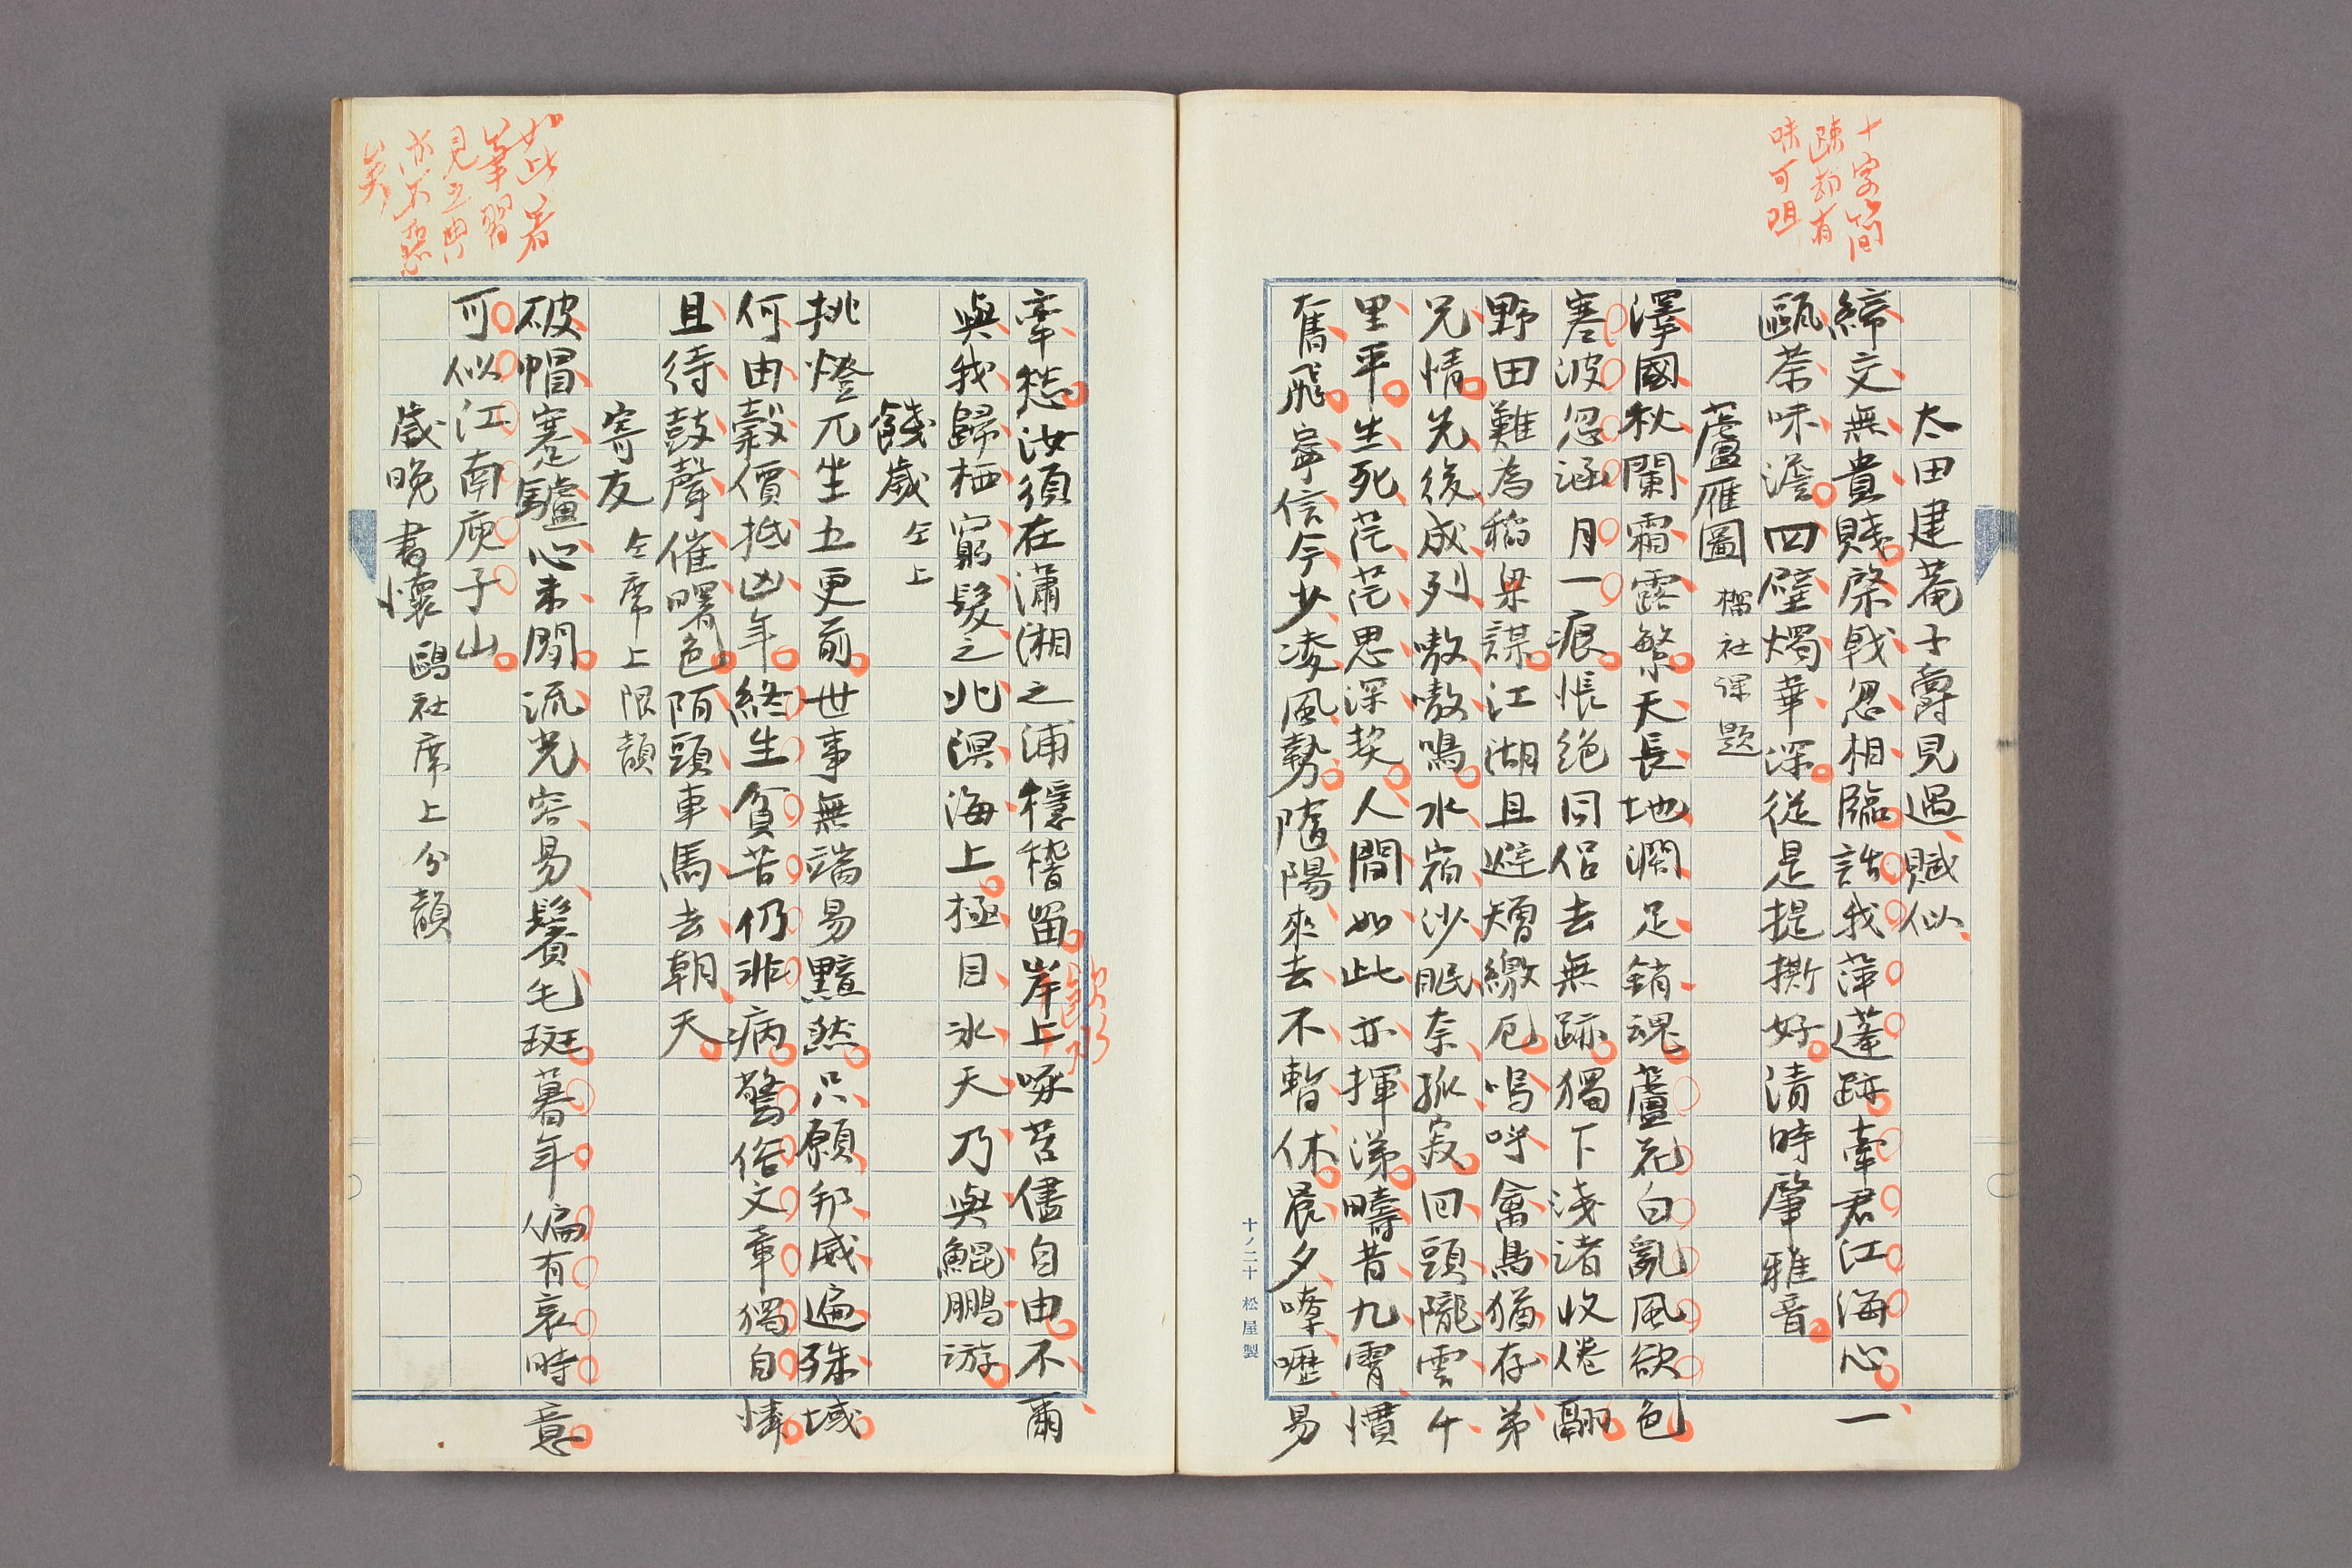 十字簡
味可咀
太田建菴子爵見過賦似
締交無貴賤棨戟忽相臨話我萍蓬跡牽君江海心一
甌茶味澹四壁燭華深從是提撕好清時肇雅音
蘆雁圖 榴社課題
澤國秋闌霜露繁天長地濶足銷魂蘆花白亂風欲色
寒波忽涵月一痕悵絶同侶去無跡獨下淺渚收倦翮
野田難為稻粱謀江湖且避矰繳厄嗚呼禽鳥猶存弟
兄情先後成列嗷嗷鳴水宿沙眠奈孤寂回頭隴雲千
里平生死茫茫思深契人間如此亦揮涕疇昔九霄慣
奮飛寧信今少凌風勢隨陽來去不暫休晨夕嘹嚦易
牽愁汝須在瀟湘之浦穩稽留岸上啄苔儘自由不爾
與我歸栖窮髮之北溟海上極目氷天乃與鯤鵬游
餞歲 仝上
挑燈兀坐五更前世事無端易黯然只願邦威遍殊域
何由穀價抵凶年終生貧苦仍非病驚俗文章獨自憐
且待鼓聲催曙色陌頭車馬去朝天
寄友 仝席上限韻
破帽蹇驢心未閒流光容易鬢毛斑暮年偏有哀時意
可似江南庾子山
歲晩書懷 鷗社席上分韻
十ノ二十 松屋製